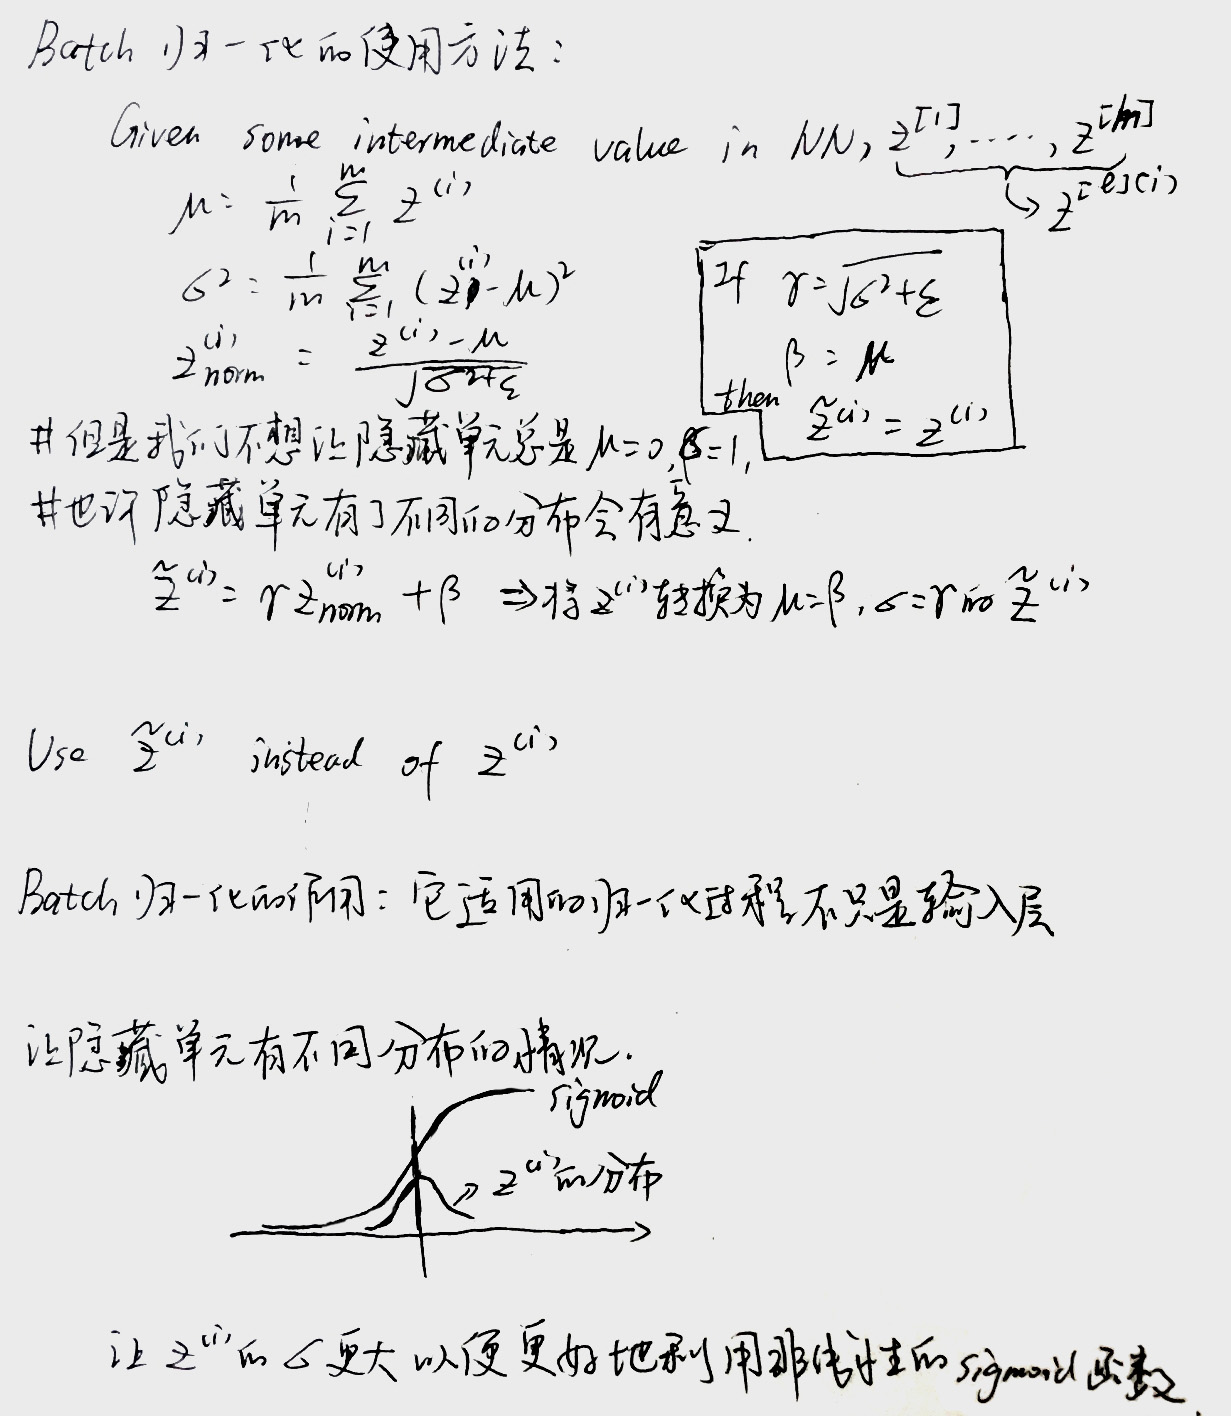 Batch 归一化的使用方法：
Given some intermediate value in NN, z^[1], ....., z^[m]
→ z^[l](i)
μ = 1/m Σ_{i=1}^{m} z^(i)
σ² = 1/m Σ_{i=1}^{m} (z^(i) - μ)²
z_norm^(i) = (z^(i) - μ) / √(σ²+ε)
If γ = √(σ²+ε)
β = μ
then z̃^(i) = z^(i)
#但是我们不想让隐藏单元总是 μ=0, σ=1,
#也许隐藏单元有了不同的分布会有意义.
z̃^(i) = γ z_norm^(i) + β ⇒ 将z^(i)转换为 μ=β, σ=γ的 z̃^(i)
Use z̃^(i) instead of z^(i)
Batch 归一化的作用：它适用的归一化过程不只是输入层
让隐藏单元有不同分布的情况.
sigmoid
→ z^(i)的分布
让 z^(i)的 σ 更大以便更好地利用非线性的 sigmoid 函数.